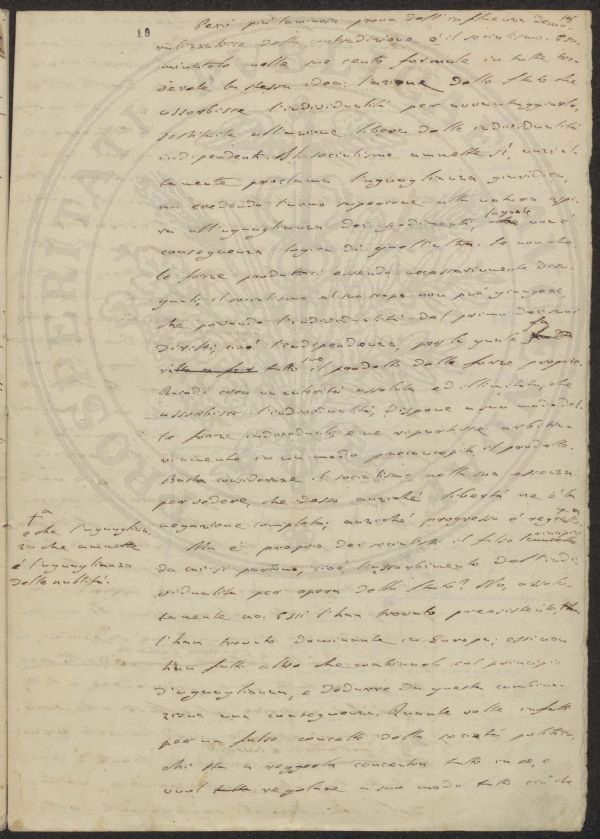 19
Però più luminosa prova dell'influenza demo-
ralizzatrice della contradizione è il socialismo. Esa-
minatelo nelle sue cento formule in tutte tro-
verete la stessa idea: l'azione dello Stato che
assorbisce l'individualità per avvantaggiarlo,
sostituita all'azione libera delle individualità
indipendenti. Il socialismo ammette sì, anzi al-
tamente proclama l'uguaglianza giuridica,
ma credendo l'uomo superiore alla natura aspi-
ra all'uguaglianza dei godimenti, laquale non è
conseguenza logica di quell'altra. Se non che
le forze produttrici essendo necessariamente dise-
guali, il socialismo al suo scopo non può giungere,
che privando l'individualità del primo dei suoi
diritti, cioè l'indipendenza, per la quale fa
suo tutto il prodotto delle forze proprie.
Quindi crea un'autorità assoluta ed illimitata, che
assorbisce l'individualità, dispone a suo modo del-
le forze individuali, e ne ripartisce arbitra-
riamente in un modo preconcepito il prodotto.
Basta considerare il socialismo nella sua essenza
per vedere, che desso anziché libertà ne è la
negazione completa; anziché progresso è regresso
+ e che l'uguaglian-
za che ammette
è l'uguaglianza
delle nullità.
Ma è proprio dei socialisti il falso principio
da cui si partono, cioè l'assorbimento dell'indi-
vidualità per opera dello Stato? No, assolu-
tamente no. Essi l'han trovato preesistente,
l'han trovato dominante in Europa; essi non
han fatto altro che combinarlo col principio
d'uguaglianza, e dedurre da questa combina-
zione una conseguenza. Quante volte infatti
per un falso concetto della società politica,
chi sta a reggerla concentra tutto in se, e
vuol regolare a suo modo tutto ciò che